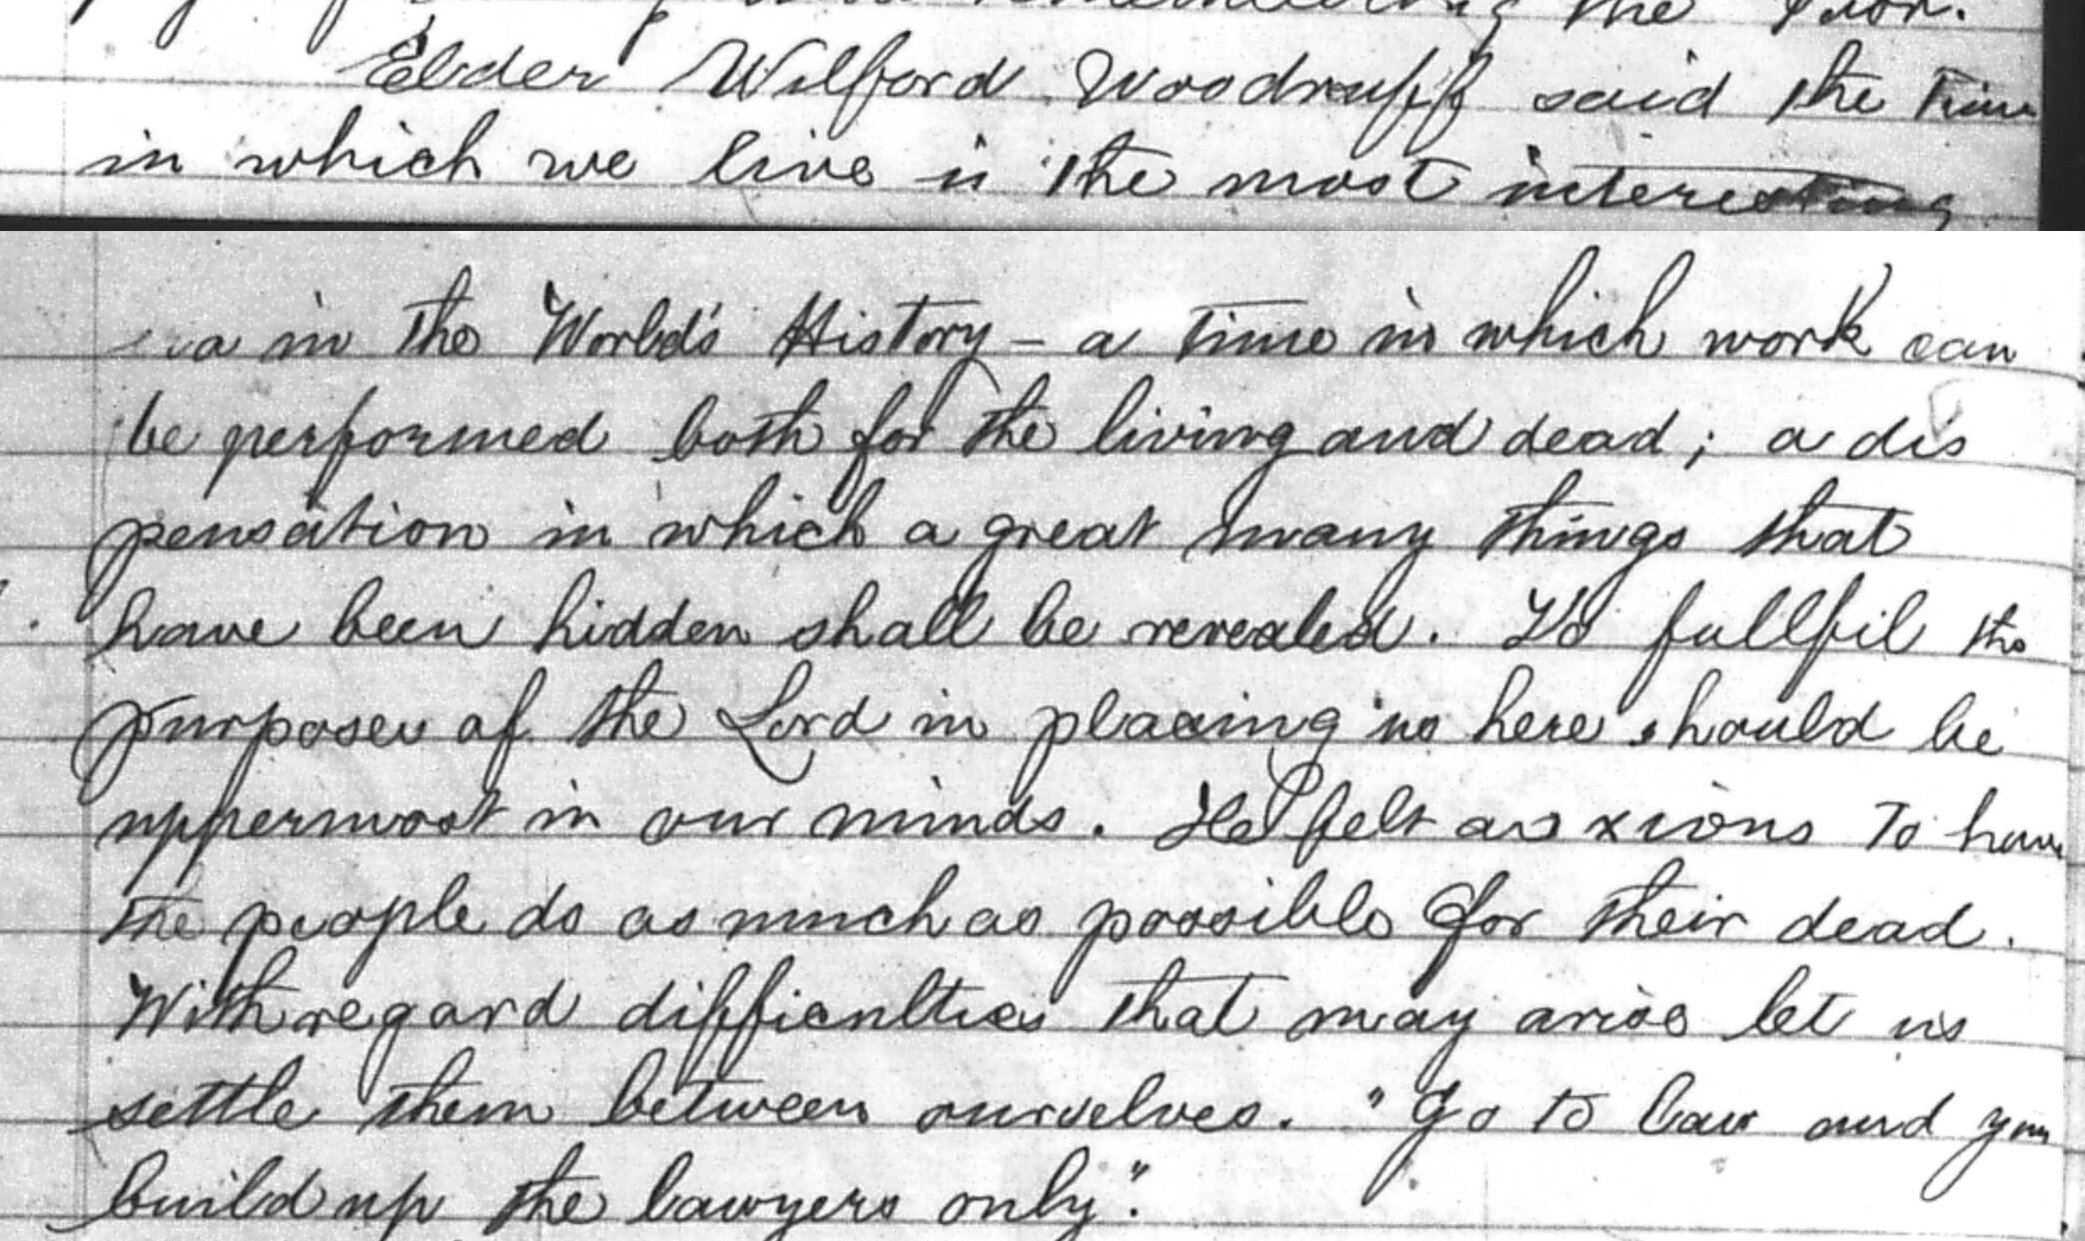 the Poor.
Elder Wilford Woodruff said the time
in which we live is the most interesting
era in the World's History – a time in which work can
be performed both for the living and dead; a dis
pensation in which a great many things that
have been hidden shall be revealed. To fullfil the
purposes of the Lord in placing us here should be
uppermost in our minds. He felt anxxious to have
the people do as much as possible for their dead.
With regard difficulties that may arise let us
settle them between ourselves. "Go to Law and you
build up the lawyers only".